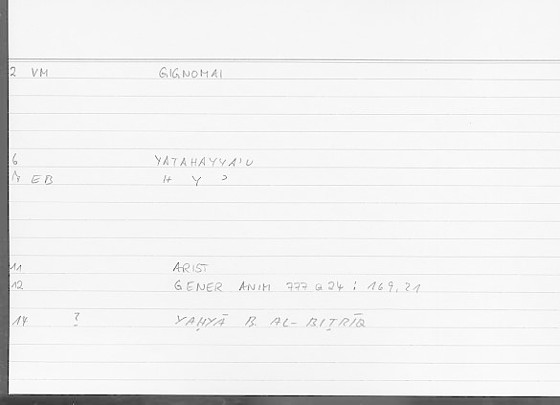 2 VM GIGNOMAI
6 YATAHAYYA'U
7 EB H Y ɔ
11 ARIST
12 GENER ANIM 777 a 24 : 169,21
14 ? YAḤYĀ B. AL-BIṬRĪQ